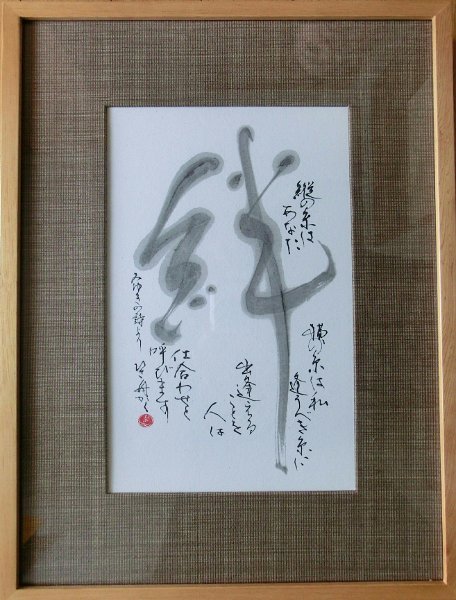 絆
縦の糸は
あなた
横の糸は私
逢うべき糸に
出逢える
ことを
人は
仕合わせと
呼びます
みゆきの詩より